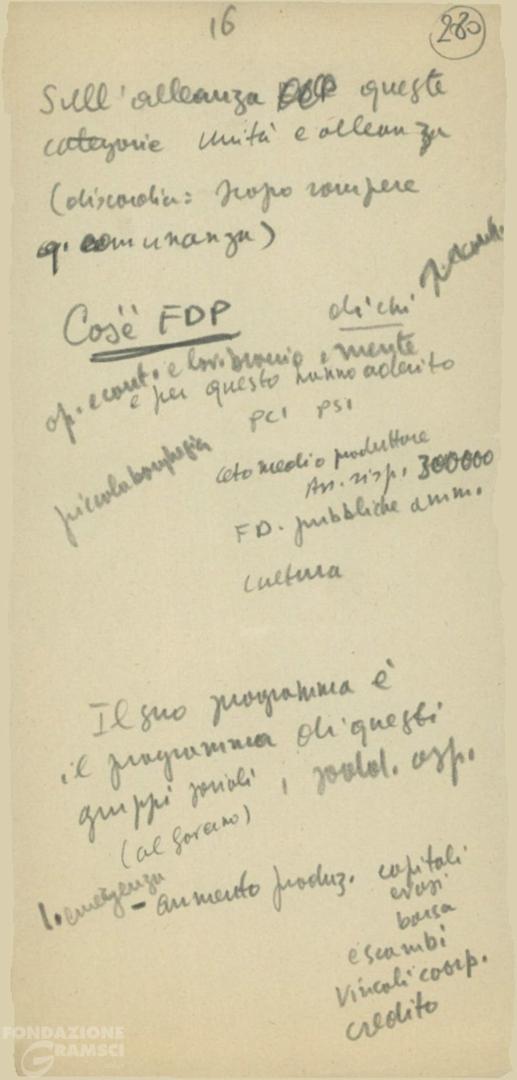 16
280
Sull'alleanza queste
categorie unità e alleanza
(discordia: scopo rompere
q. comunanza)
Cos'è FDP
di chi
op. e cont. e mente
e per questo hanno aderito
PCI PSI
piccola borghesia
ceto medio produttore
Ass. risp. 300000
F.D. pubbliche amm.
cultura
Il suo programma è
il programma di questi
gruppi sociali, soddd. asp.
(al governo)
1. emergenza
- aumento produz. capitali
evasi
borsa
e scambi
vincoli coop.
credito
FONDAZIONE
GRAMSCI